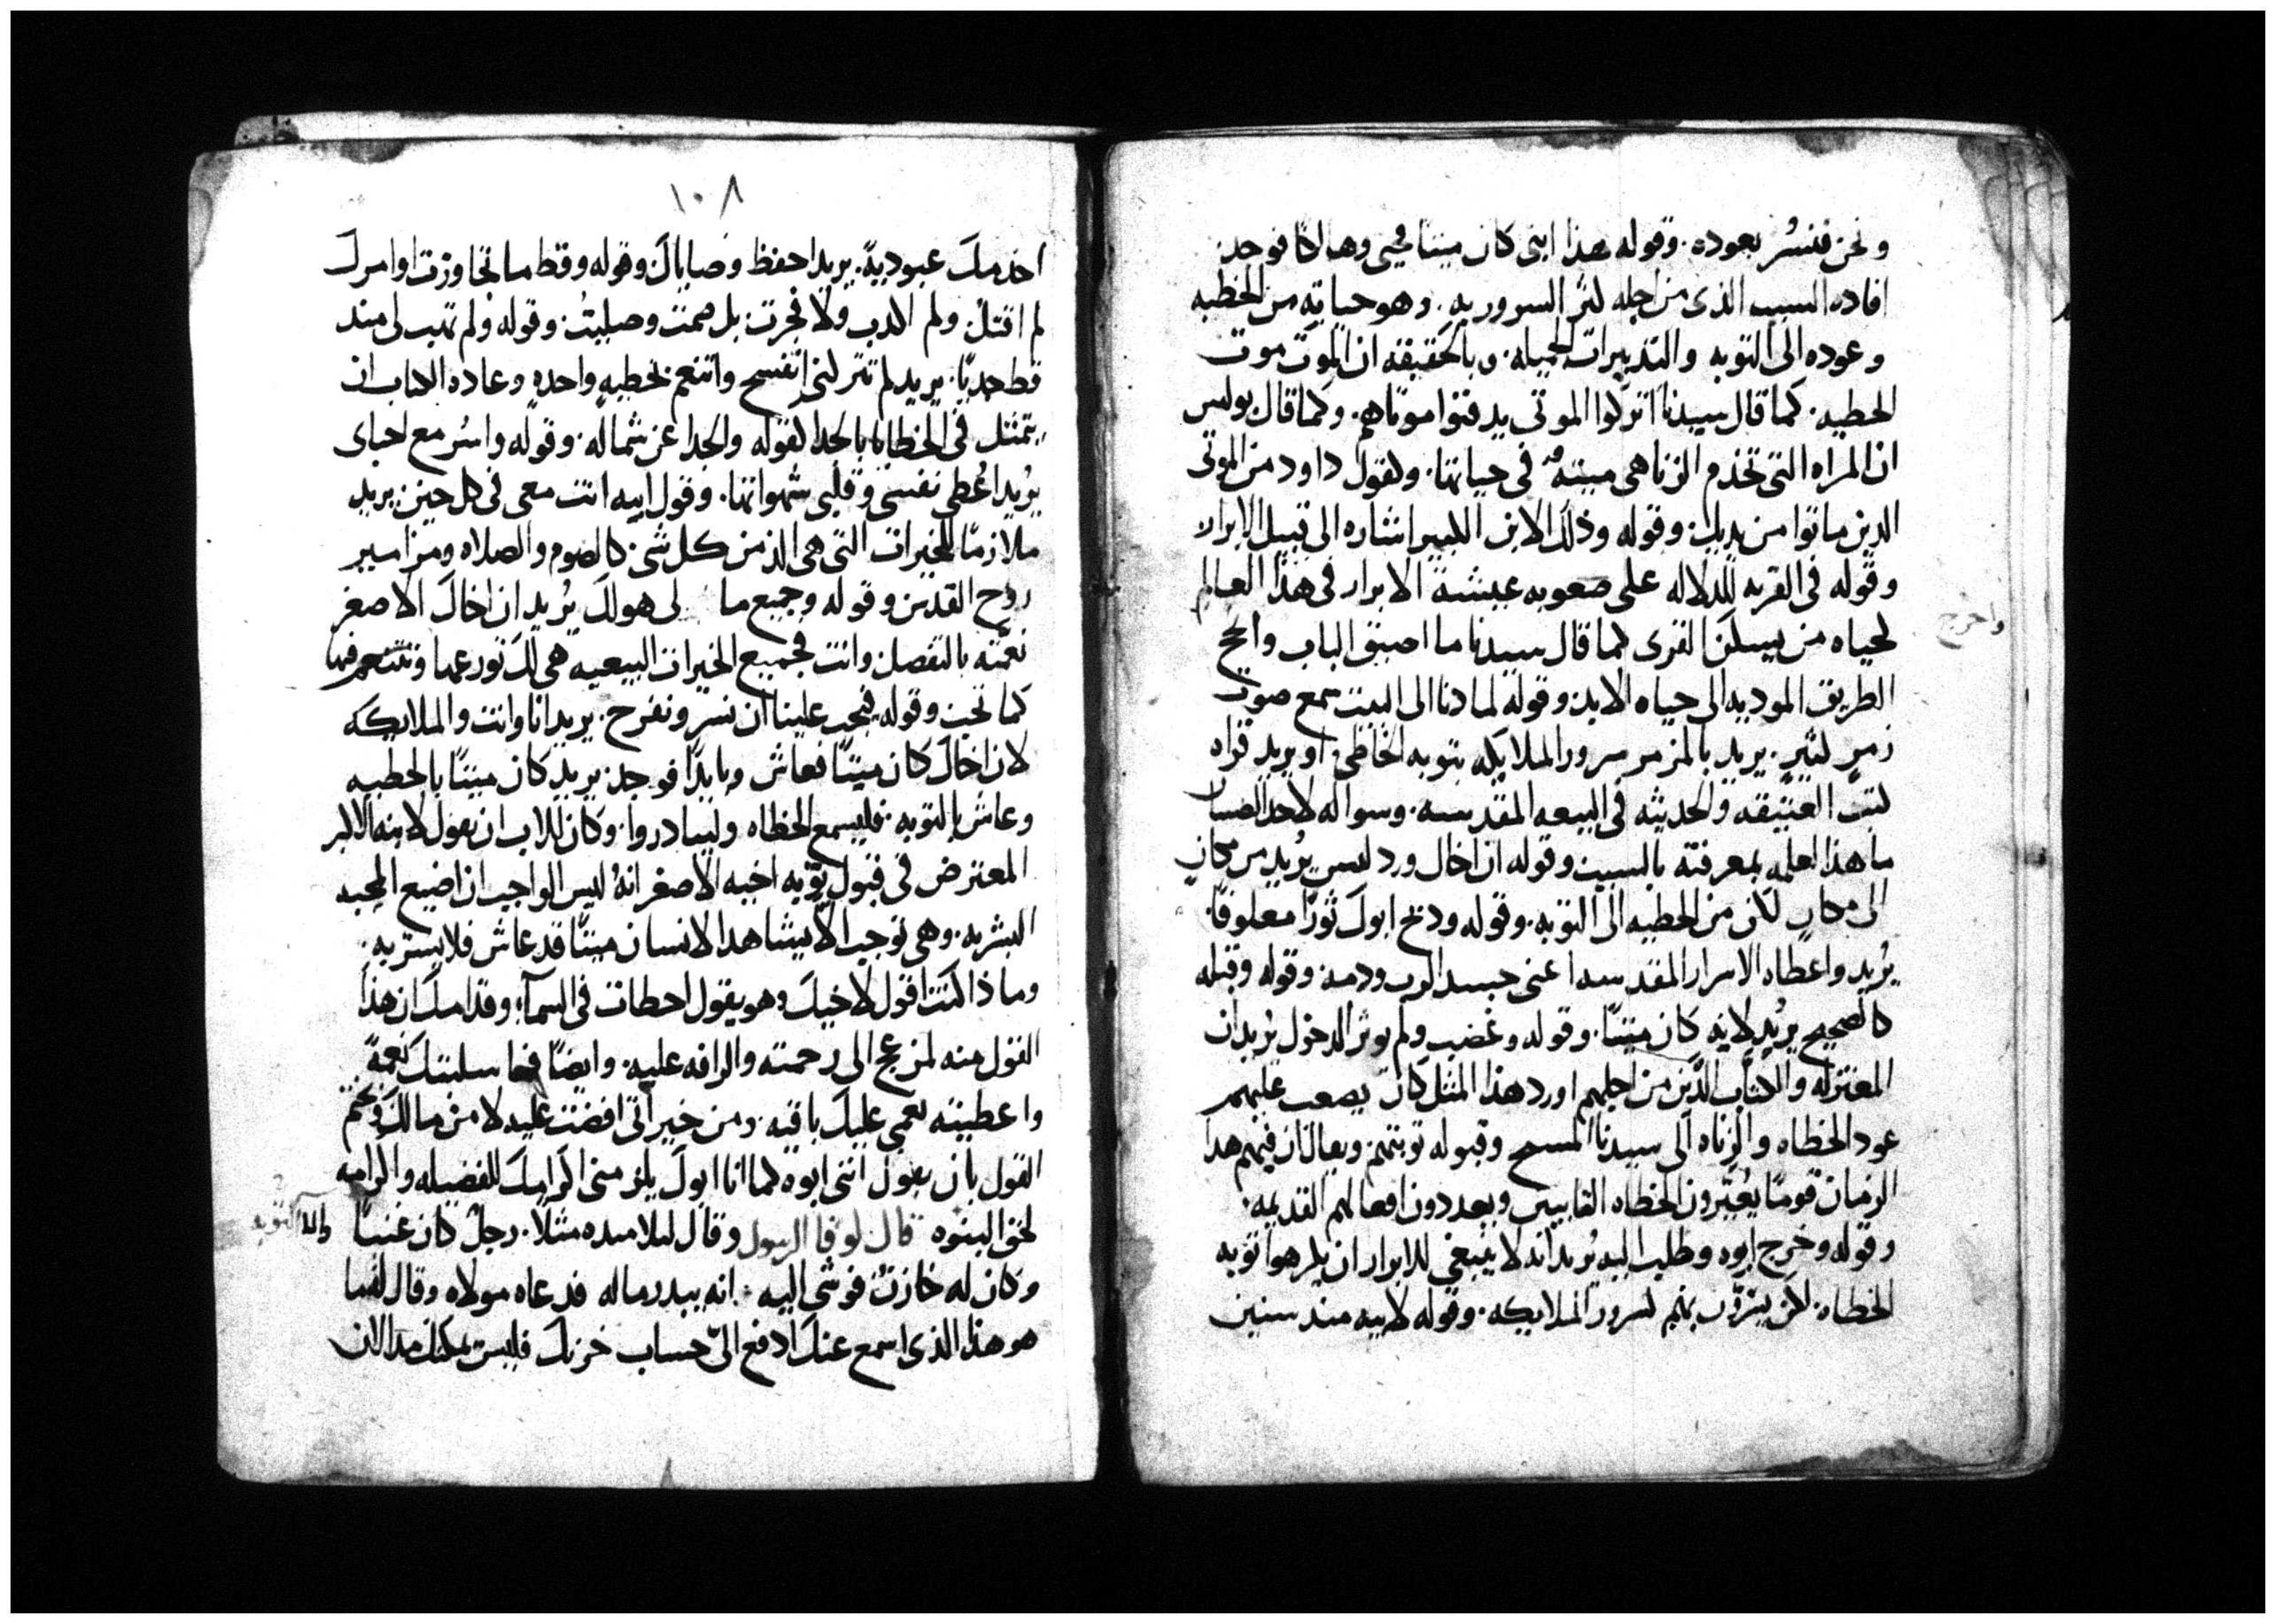 ونحن فنسُر بعوده. وقوله هذا ابنى كان ميتا فحيى وهالكا فوجد
افاده السبب الذى من اجله كثر السرور به. وهو حياته من الخطيه
وعوده الى التوبه والتدبيرات الجميله. وبالحقيقه ان الموت موت
الخطيه. كما قال سيدنا اتركوا الموتى يدفنوا موتاهم. وكما قال بولس
ان المراه التى تخدم الزنا هى ميته فى حياتها. ولقول داود من الموتى
الدين ماتوا من يديك وقوله وذلك الابن الكبير اشاره الى قبيل الابرار
وقوله فى القريه للدلاله على صعوبه عيشة الابرار فى هذا العالم
لحياه من يسكن القرى كما قال سيدنا ما اضيق الباب والحج
الطريق الموديه الى حياه الابد وقوله لما دنا الى البيت سمع صوت
زمرٍ كثيرٍ. يريد بالمزمر سرور الملايكه بتوبه الخاطى او يريد قراه
كتب العتيقه والحديثه فى البيعه المقدسه. وسواله لاحد الصبيان
ما هذا لعلمه بمعرفته بالسبب وقوله ان اخاك ورد ليس يُريد من مكانٍ
الى مكانٍ لكن من الخطيه الى التوبه. وقوله ودبح ابوك ثورًا معلوفًا.
يُريد واعطاه الاسرار المقدسه اعنى جسد الرب ودمه وقوله وقبله
كالصحيح يريد لانه كان ميتًا. وقوله وغضب ولم يوثر الدخول يُريد ان
المعتزله والكتاب الذين من اجلهم اورد هذا المثل كان يصعب عليهم
عود الخطاه والزناه الى سيدنا المسيح وقبوله توبتهم ويقال ان فيهم هدا
الزمان قومًا يُعيّرون الخطاه التايبين ويعددون افعالهم القديمه.
وقوله وخرج ابوه وطلب اليه يُريد انه لا ينبغى للابرار ان يكرهوا توبه
الخطاه. لكن يسرّون بهم كسرور الملايكه. وقوله لابيه مند سنين
واخرج
١٠٨
اخدمك عبوديةً. يريد احفظ وصاياك وقوله وقط ما تجاوزت اوامرك
لم اقتل ولم اكدب ولا فجرت بل صمت وصليتُ. وقوله ولم تهب لى مند
قط جديًا. يريد لم تتركنى اتفسح واتنعم بخطيهٍ واحدهٍ وعاده الكتاب ان
يتمثل فى الخطايا بالجدا لقوله والجدا عن شماله. وقوله واسُر مع احباى
يُريد اعُطى نفسى وقلبى شهواتها. وقول ابيه انت معى فى كل حين يريد
ملازمًا للخيرات التى هى الذ من كل شى كالصوم والصلاه ومزامير
روح القدس وقوله وجميع ما لى هو لك يُريد ان اخاك الاصغر
نعمته بالتفصل وانت فجميع الخيرات البيعيه هى لك تورعها وتتنعم فيها
كما تحب وقوله فيجب علينا ان نسر ونفرح. يريد انا وانت والملايكه
لان اخاك كان ميتًا فعاش وبايدًا فوجد يريد كان ميتًا بالخطيه
وعاش بالتوبه. فليسمع الخطاه وليبادروا. وكان للاب ان يقول لابنه الاكبر
المعترض فى قبول توبه اخيه الاصغر انهُ ليس الواجب ان اضيع المحبه
البشريه. وهى توجب الا يشاهد الانسان ميتًا قد عاش فلا يستر به.
وماذا كنت اقول لاخيك وهو يقول اخطات فى السمآء وقدامك ان هذا
القول منه لمزعج الى رحمته والرافه عليه. وايضًا فما سلبتك نعمةً
واعطيته نعمى عليك باقيه. ومن خيراتى افضت عليه لا من مالك ونختم
القول بان يقول اننى ابوه كما انا ابوك يلزمنى اكرامك للفضيله واكرامه
لحق البنوه قال لوقا الرسول وقال لتلاميده مثلًا. رجلٌ كان غنيًا
وكان له خازنٌ فوشى اليه انه يبدر ماله فدعاه مولاه وقال له ما
هو هذا الذى اسمع عنك ادفع الىّ حساب خزنك فليس يمكنك مد الان